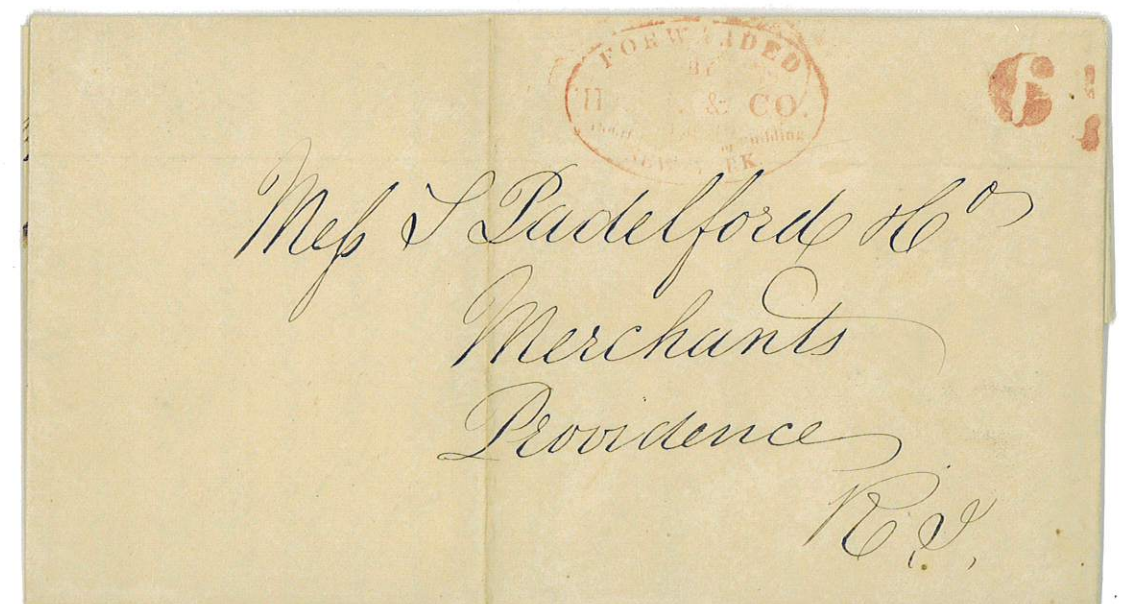 FORWARDED
BY
& CO.
Building
NEW YORK.
6
Mess S Padelford & Co
Merchants
Providence
R. I.